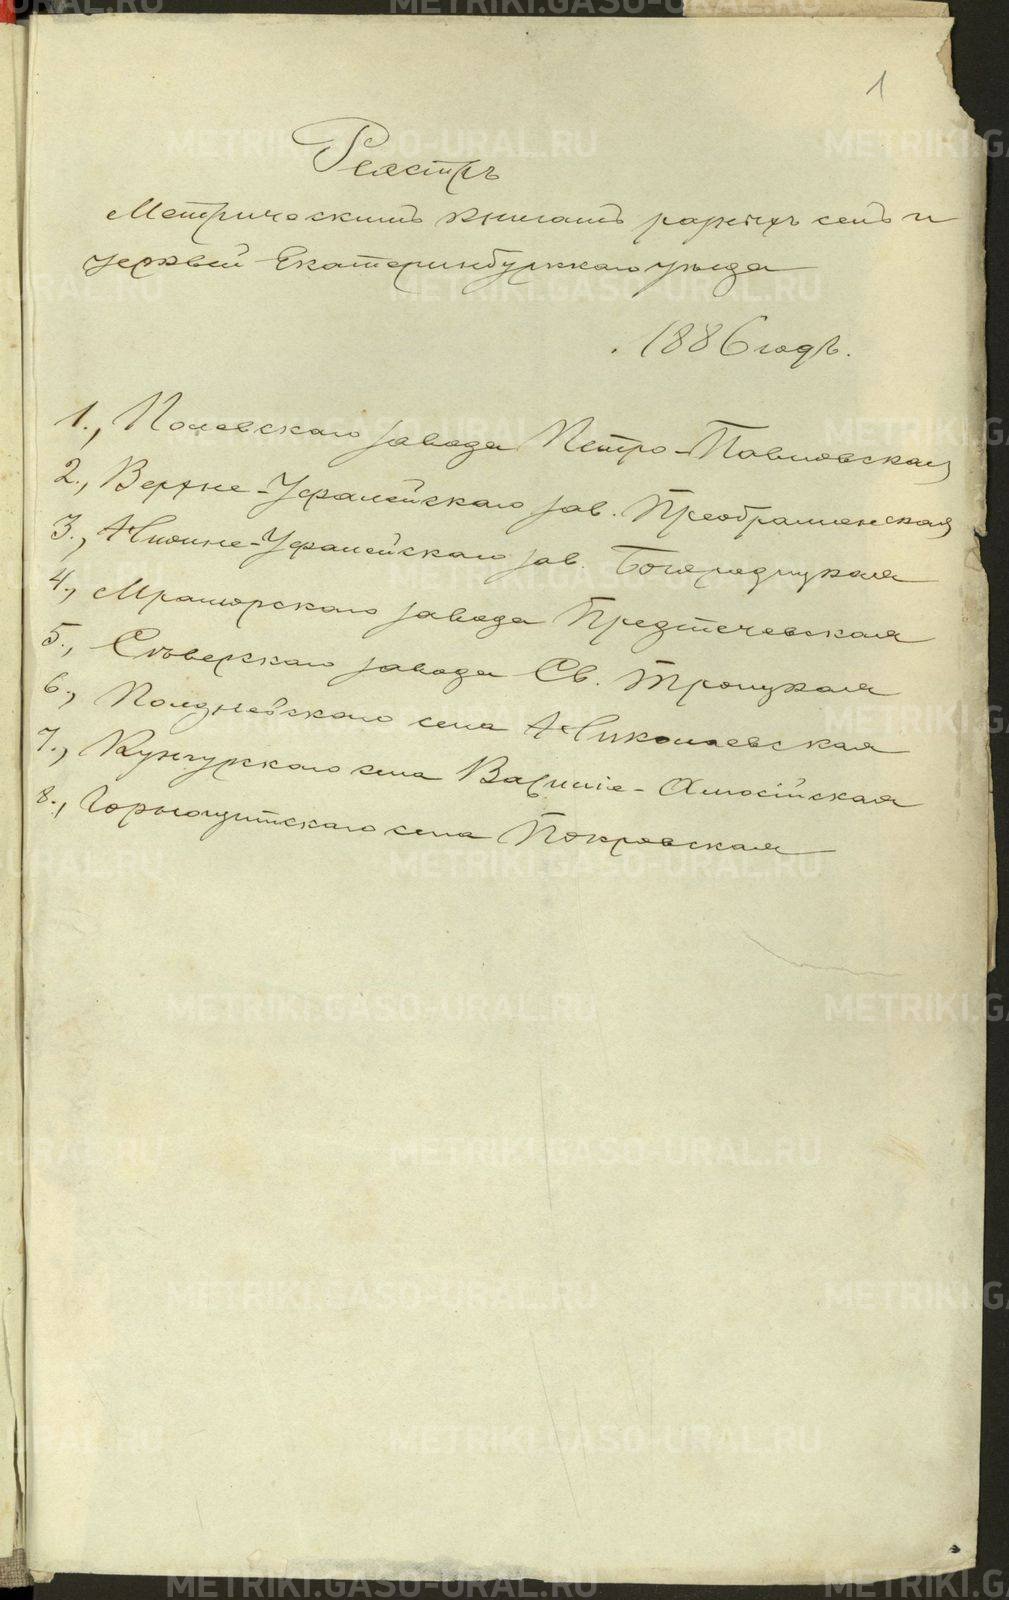 1
Реэстръ
Метрическимъ книгамъ разныхъ селъ и
церквей Екатеринбургскаго уѣзда
1886 годъ.
1., Полевскаго завода Петро-Павловская
2., Верхне-Уфалейскаго зав. Преображенская
3., Нижне-Уфалейскаго зав. Богородицкая
4., Мраморскаго завода Предтечевская
5., Сѣверскаго завода Св. Троицкая
6., Полдневскаго села Николаевская
7., Кунгурскаго села Васи­лiе-Амасiйская
8., Горнощитскаго села Покровская
METRIKI.GASO-URAL.RU